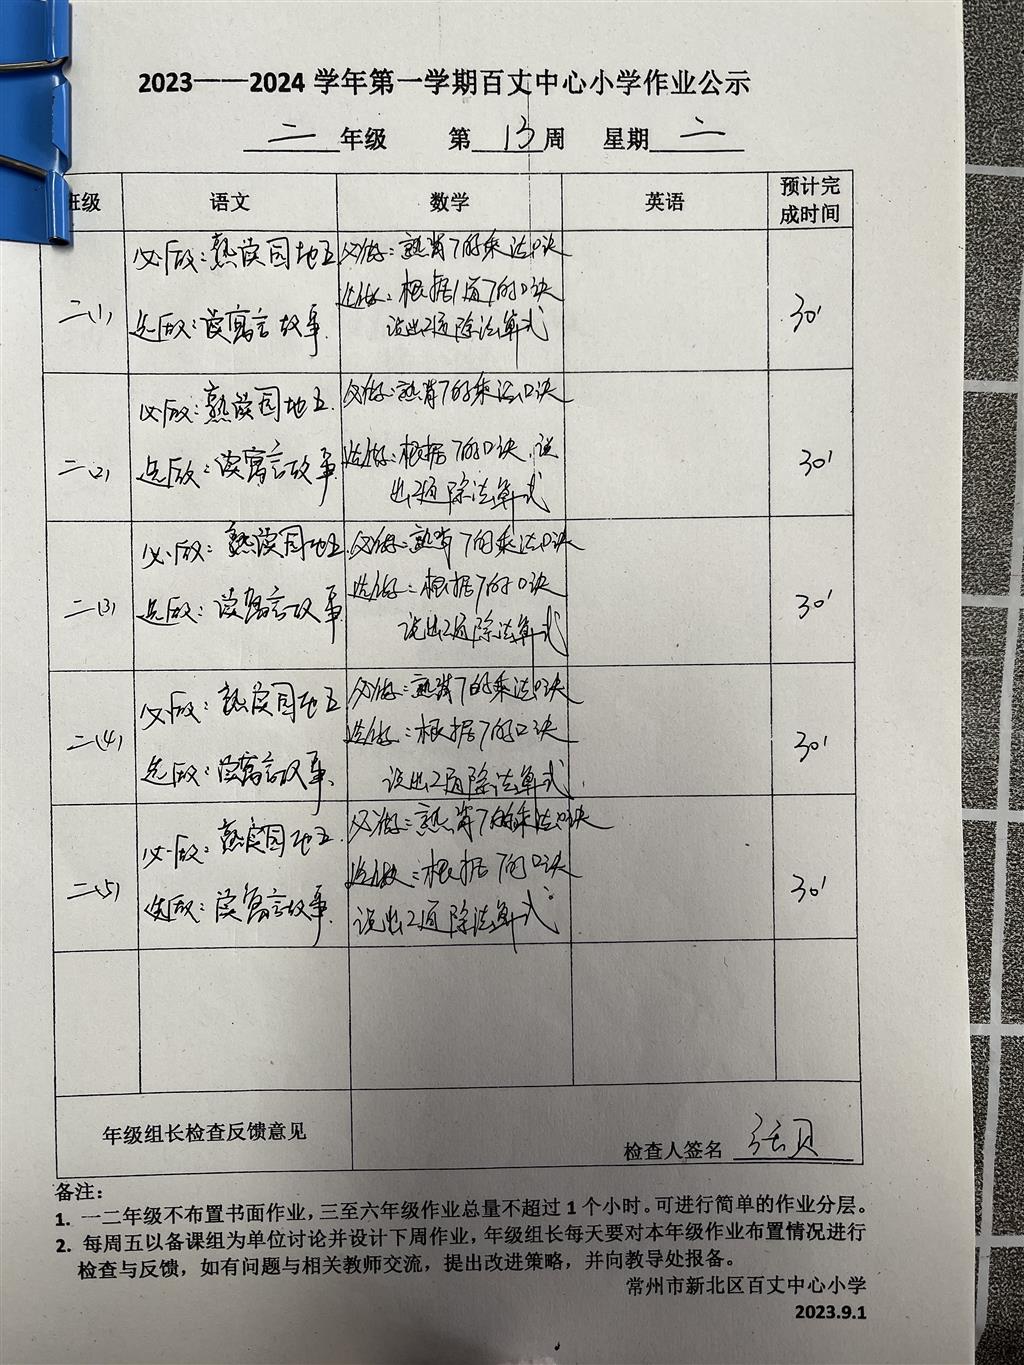 2023——2024 学年第一学期百丈中心小学作业公示
二 年级 第 13 周 星期 二
班级 语文 数学 英语 预计完成时间
二(1)
必做：熟读园地五
选做：读寓言故事.
必做：熟背7的乘法口诀
选做：根据1道7的口诀
说出2道除法算式
30'
二(2)
必做：熟读园地五.
选做：读寓言故事
必做：熟背7的乘法口诀
选做：根据7的口诀，说
出2道除法算式
30'
二(3)
必做：熟读园地五.
选做：读寓言故事
必做：熟背7的乘法口诀
选做：根据7的口诀
说出2道除法算式
30'
二(4)
必做：熟读园地五
选做：读寓言故事.
必做：熟背7的乘法口诀
选做：根据7的口诀
说出2道除法算式.
30'
二(5)
必做：熟读园地五.
选做：读寓言故事.
必做：熟背7的乘法口诀
选做：根据7的口诀
说出2道除法算式.
30'
年级组长检查反馈意见
检查人签名 张贝
备注：
1. 一二年级不布置书面作业，三至六年级作业总量不超过 1 个小时。可进行简单的作业分层。
2. 每周五以备课组为单位讨论并设计下周作业，年级组长每天要对本年级作业布置情况进行
检查与反馈，如有问题与相关教师交流，提出改进策略，并向教导处报备。
常州市新北区百丈中心小学
2023.9.1